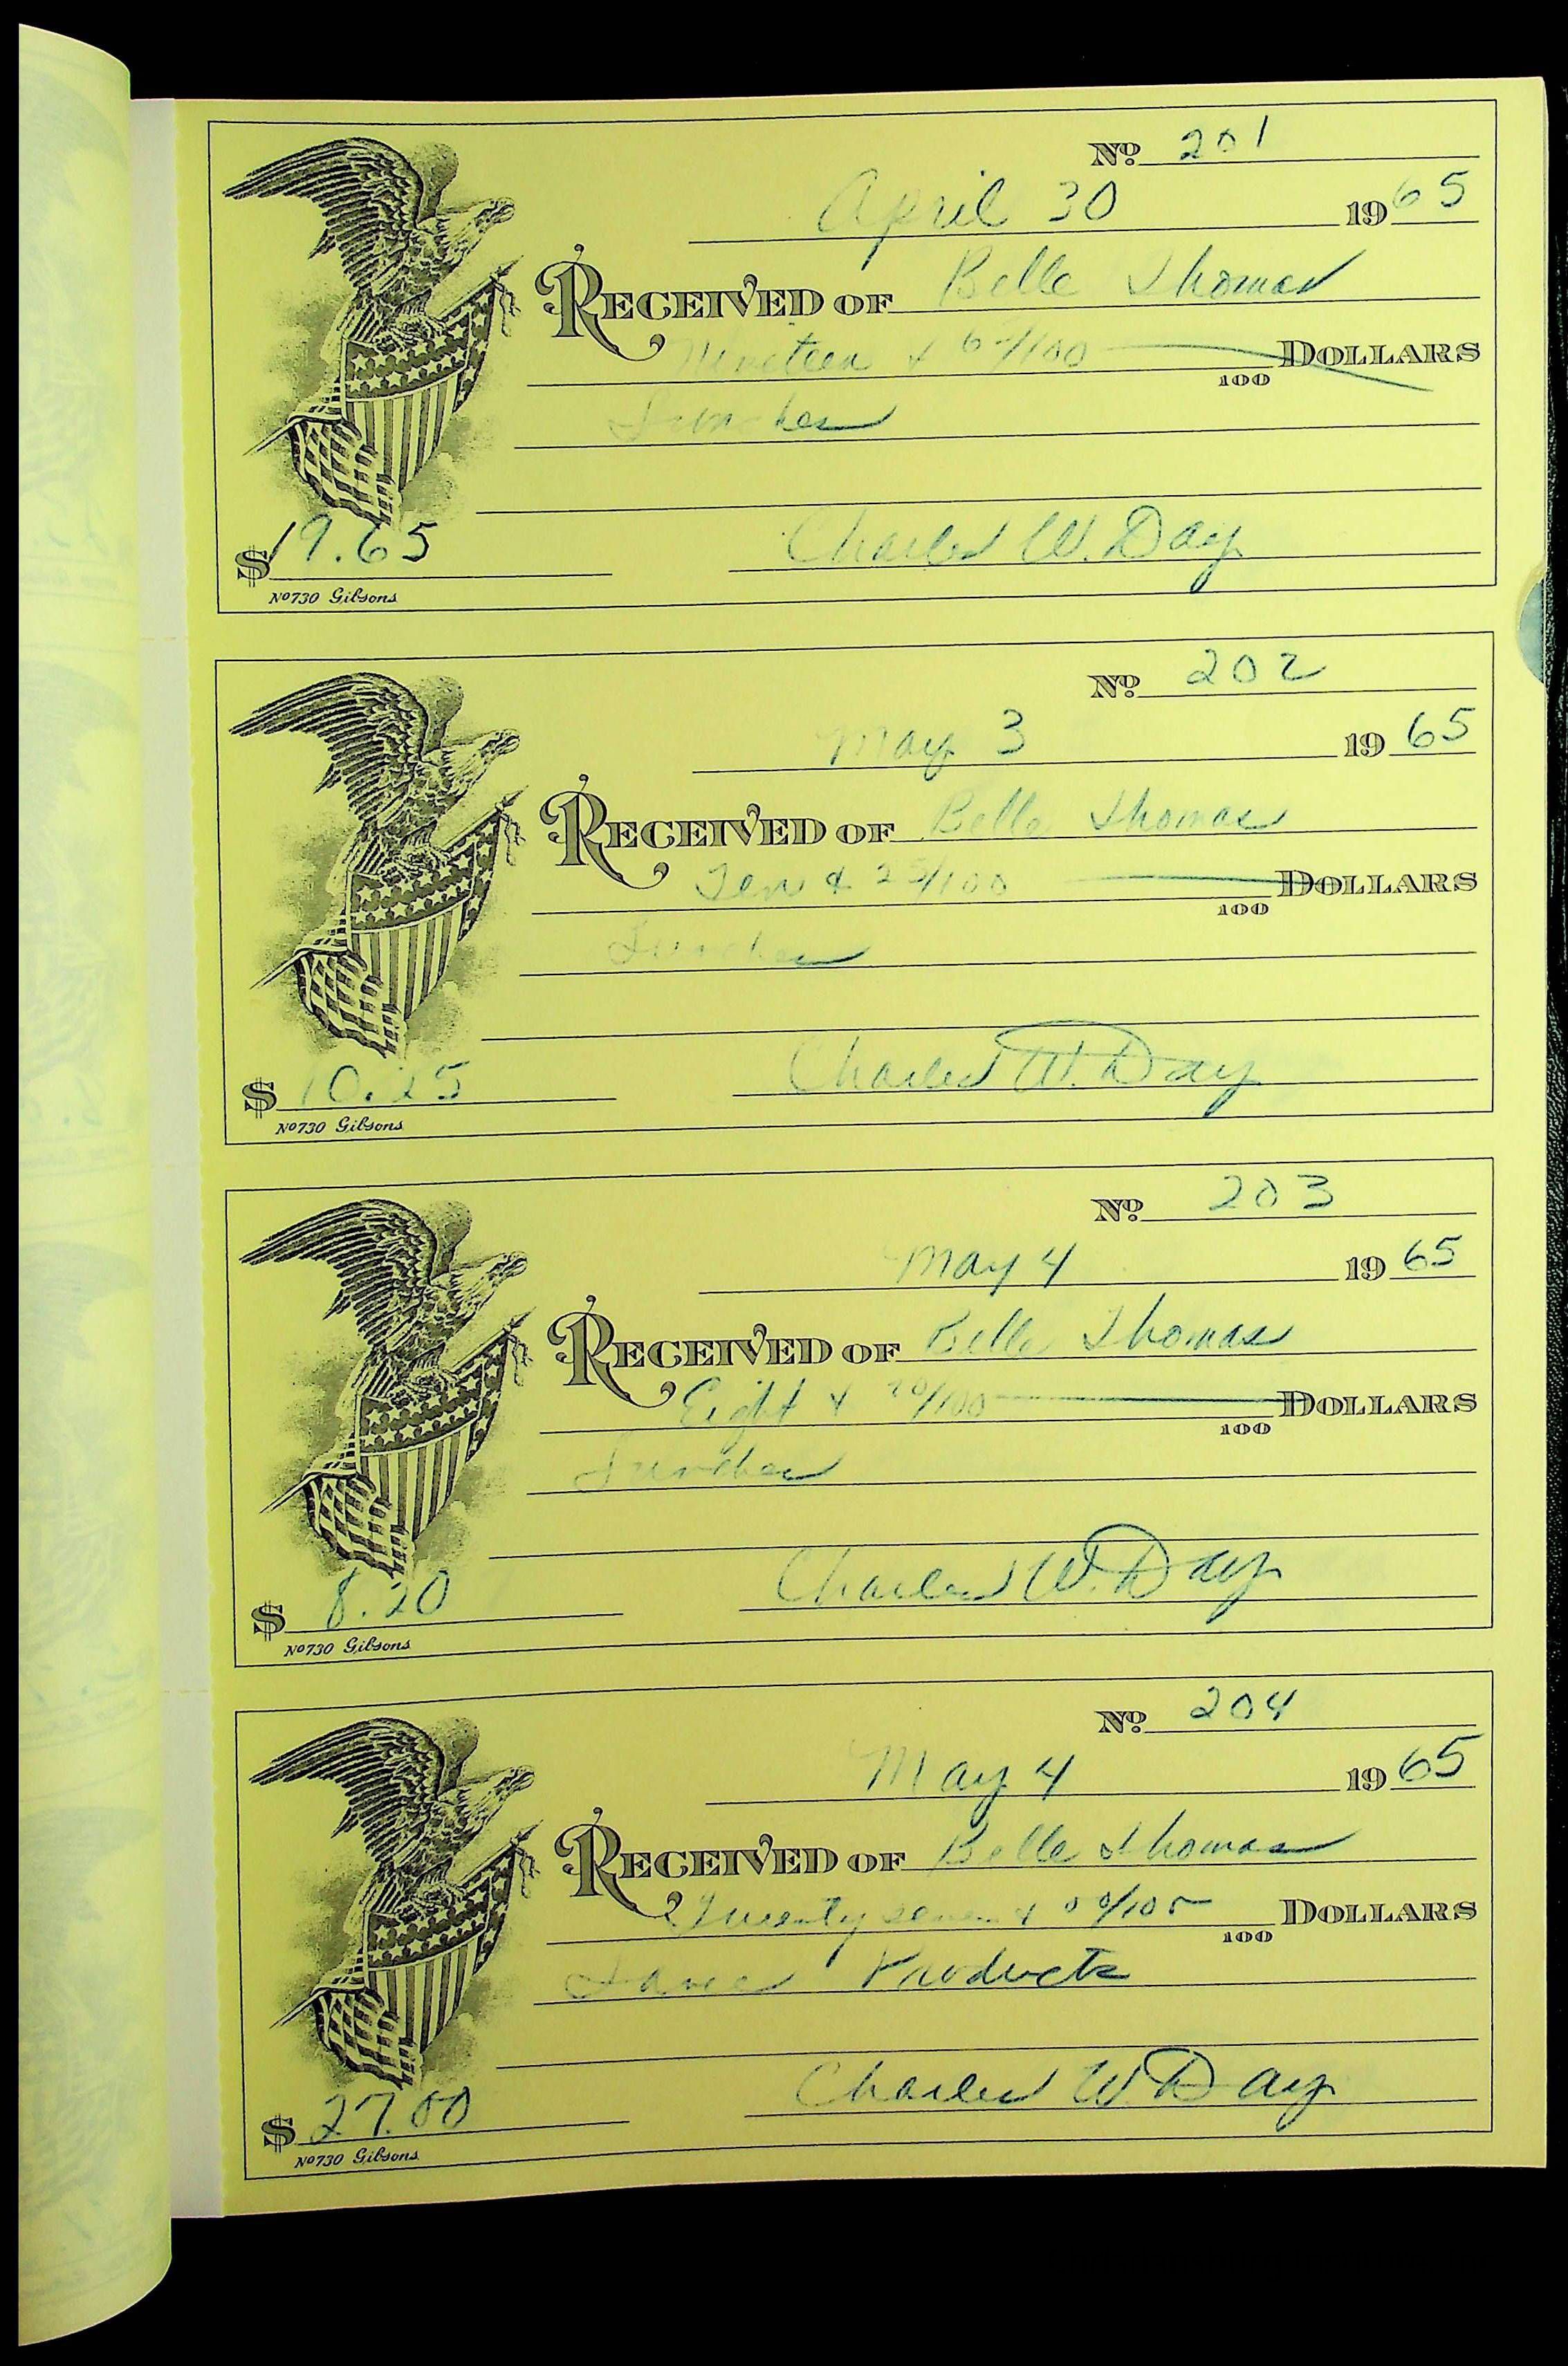 No. 201
April 30 1965
RECEIVED OF Belle Thomas
Nineteen & 65/100 DOLLARS
100
Lunches
$19.65 Charles W. Day
No 730 Gibsons
No. 202
May 3 1965
RECEIVED OF Belle Thomas
Ten & 25/100 DOLLARS
100
Lunches
$10.25 Charles W. Day
No 730 Gibsons
No. 203
May 4 1965
RECEIVED OF Belle Thomas
Eight & 20/100 DOLLARS
100
Lunches
$8.20 Charles W. Day
No 730 Gibsons
No. 204
May 4 1965
RECEIVED OF Belle Thomas
Twenty seven & 00/100 DOLLARS
100
Lance Products
$27.00 Charles W. Day
No 730 Gibsons